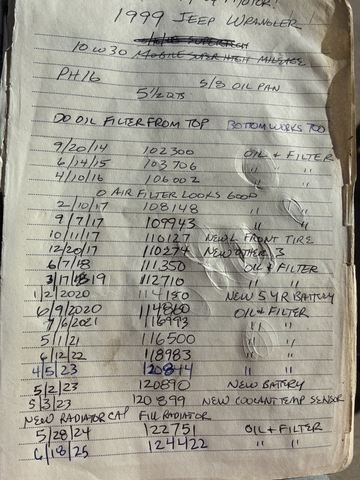 MOTOR!
1999 JEEP WRANGLER!
10W30 MOBILE SUPER HIGH MILEAGE
PH16 5/8 OIL PAN
5 1/2 QTS
DO OIL FILTER FROM TOP BOTTOM WORKS TOO
9/20/14 102300 OIL & FILTER
6/14/15 103706 " " "
4/10/16 106002 " "
O AIR FILTER LOOKS GOOD
2/10/17 108148 " "
9/7/17 109943 " "
10/11/17 110127 NEW L FRONT TIRE
12/20/17 110274 NEW OTHER 3
6/7/18 111350 OIL & FILTER
112710 " "
1/2/2020 114180 NEW 5 YR BATTERY
6/9/2020 114860 OIL & FILTER
116493 " "
5/1/21 116500 " "
6/12/22 118983 " "
4/5/23 120814 " "
5/2/23 120890 NEW BATERY
5/3/23 120899 NEW COOLANT TEMP SENSOR
NEW RADIATOR CAP FILL RADIATOR
5/28/24 122751 OIL & FILTER
6/18/25 124422 " " "